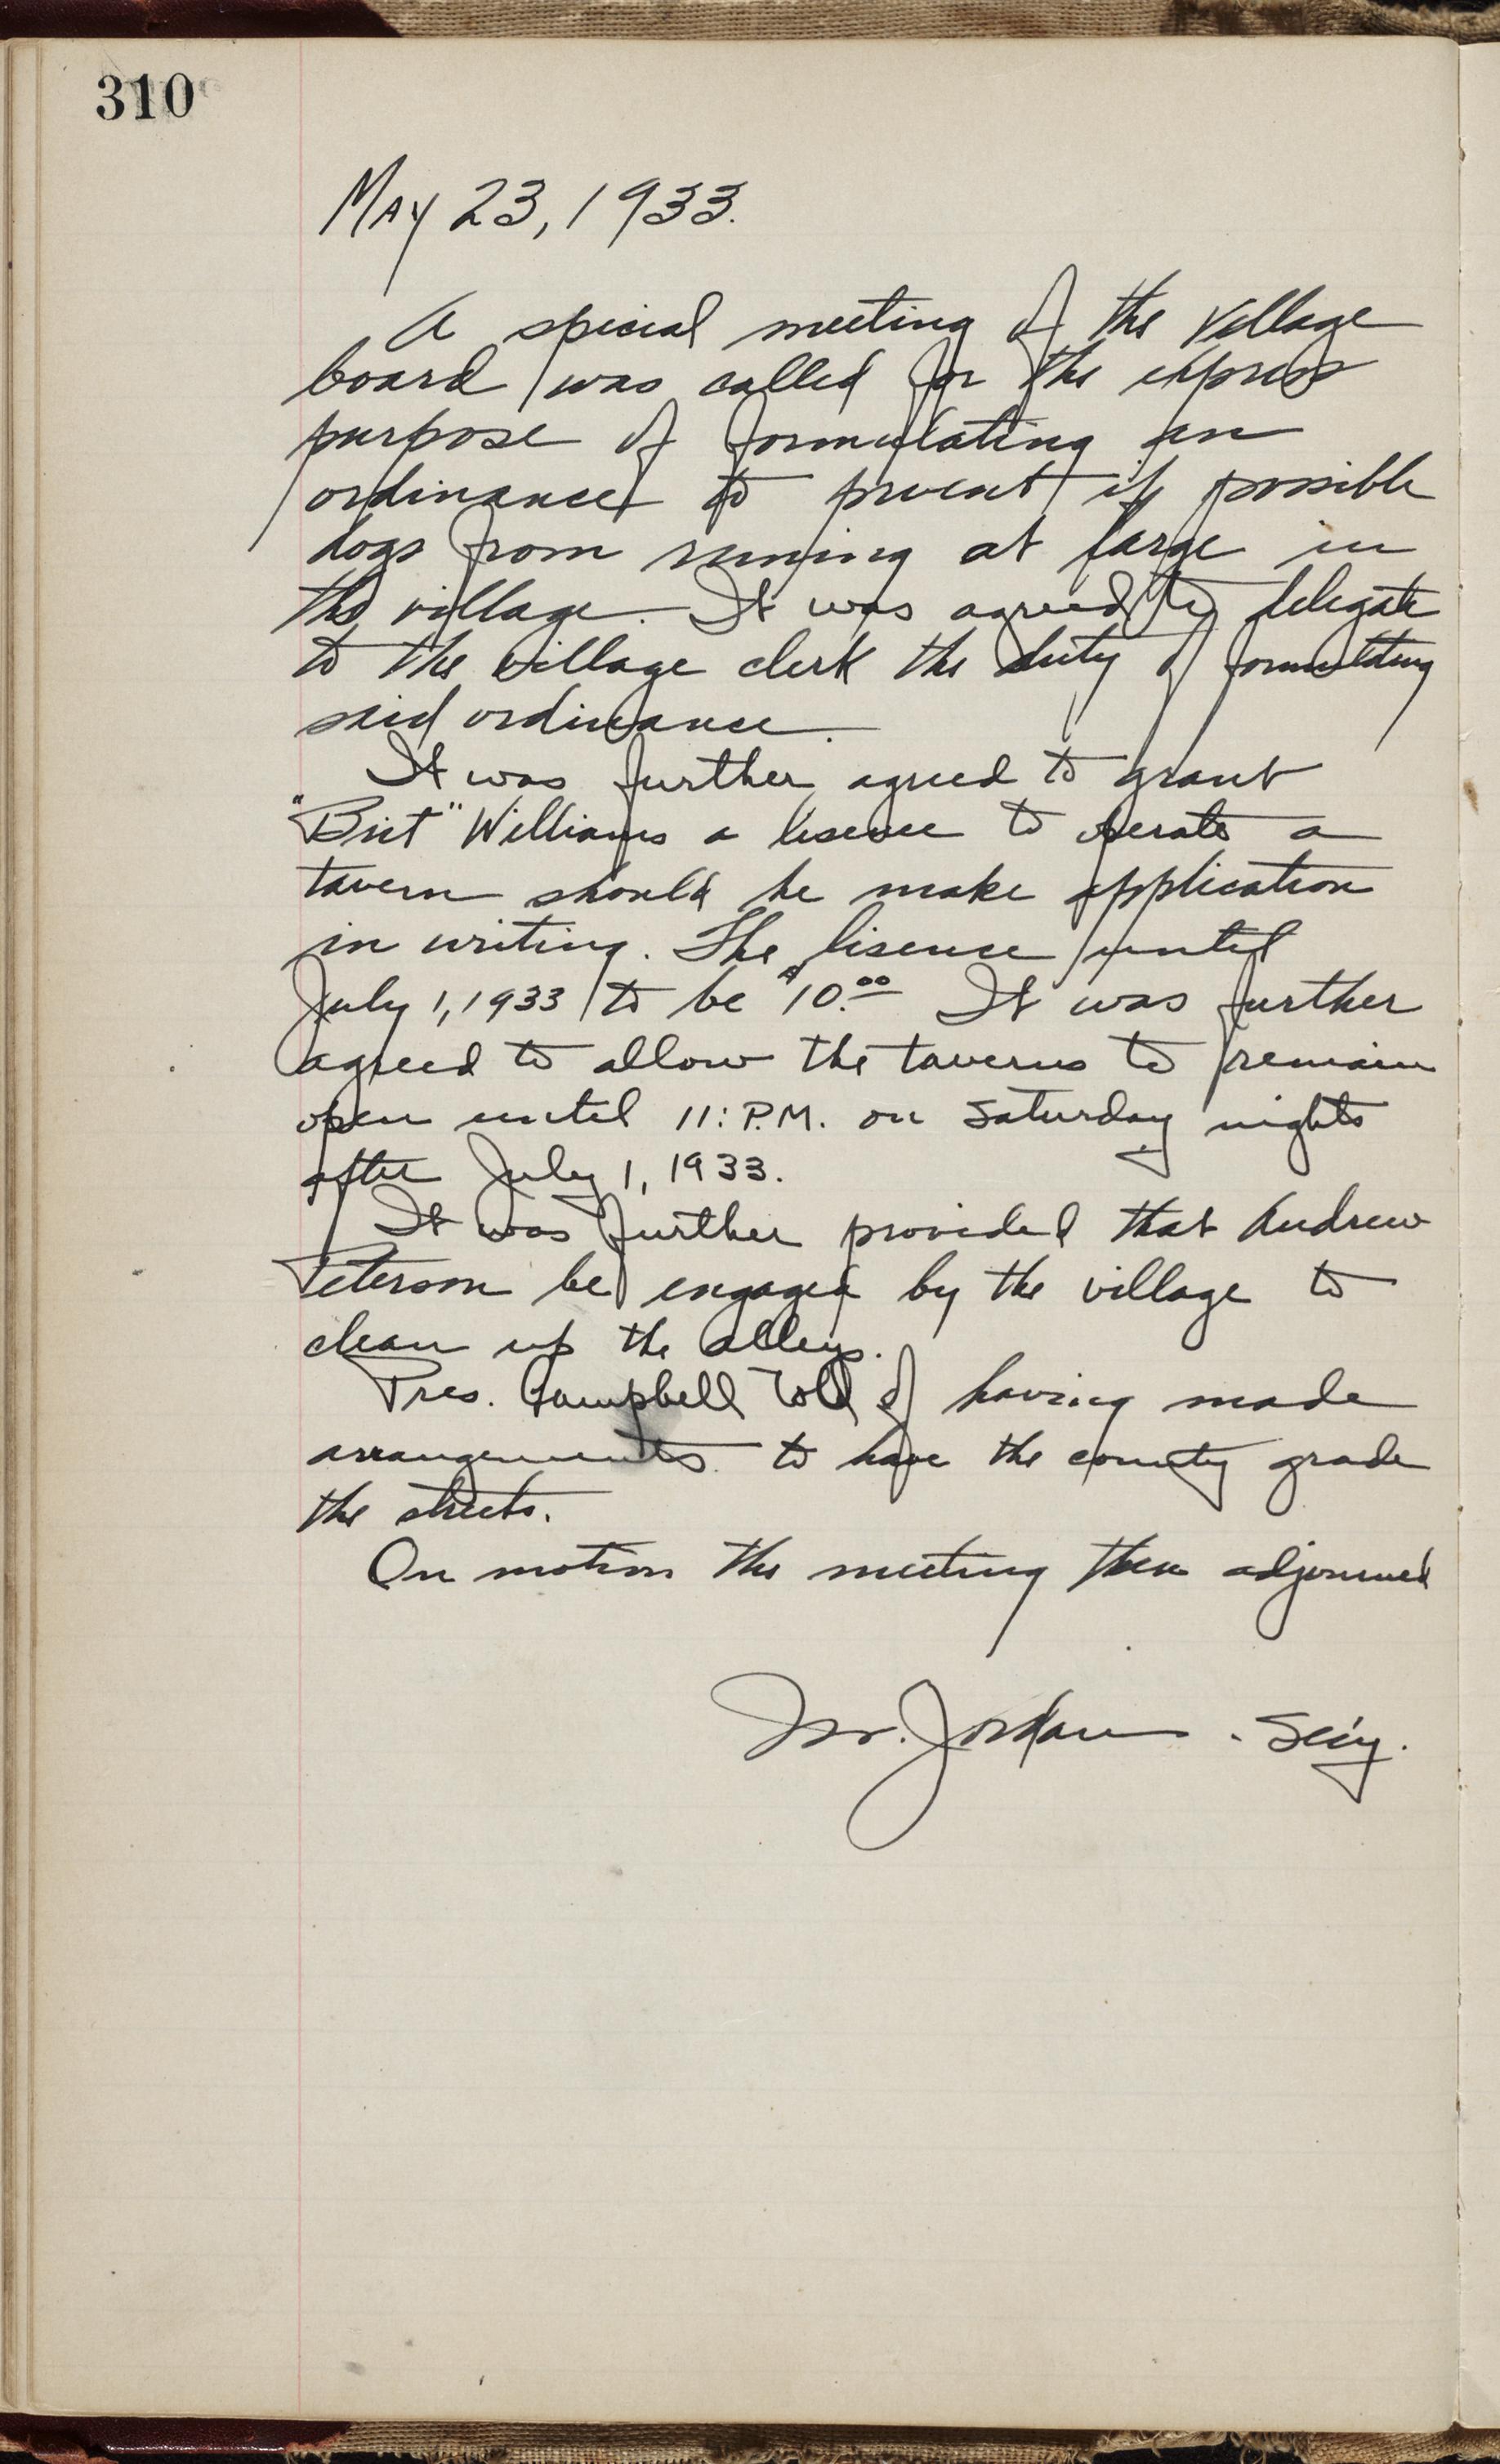 310
May 23, 1933.
A special meeting of the village
board was called for the express
purpose of formulating an
ordinance to prevent if possible
dogs from runing at large in
the village. It was agreed to delegate
to the village clerk the duty of formulating
said ordinance.
It was further agreed to grant
"Birt" Williams a lisence to operate a
tavern should he make application
in writing. The lisence until
July 1, 1933 to be $10.00 It was further
agreed to allow the taverns to remain
open until 11: P.M. on Saturday nights
after July 1, 1933.
It was further provided that Andrew
Peterson be engaged by the village to
clean up the alleys.
Pres. Campbell told of having made
arrangements to have the county grade
the streets.
On motion the meeting then adjourned
Jordan - Sec'y.